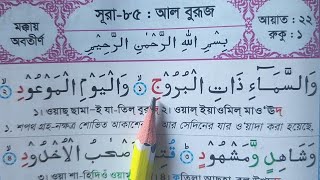 মক্কায় অবতীর্ণ
সূরা-৮৫ : আল বুরূজ
আয়াত : ২২
রুকু : ১
بِسْمِ اللهِ الرَّحْمٰنِ الرَّحِيْمِ
وَالسَّمَآءِ ذَاتِ الْبُرُوْجِ ۝ وَالْيَوْمِ الْمَوْعُوْدِ ۝
১। ওয়াছ্ ছামা-ই যা-তিল বুরূজ্ ২। ওয়াল্ ইয়াওমিল্ মাও'ঊদ্
১। শপথ গ্রহ-নক্ষত্র শোভিত আকাশের সেদিনের যার ও'য়াদা করা হয়েছে,
وَشَاهِدٍ وَّمَشْهُوْدٍ ۝ قُتِلَ اَصْحٰبُ الْاُخْدُوْدِ
ওয়া শা-হিদিওঁ